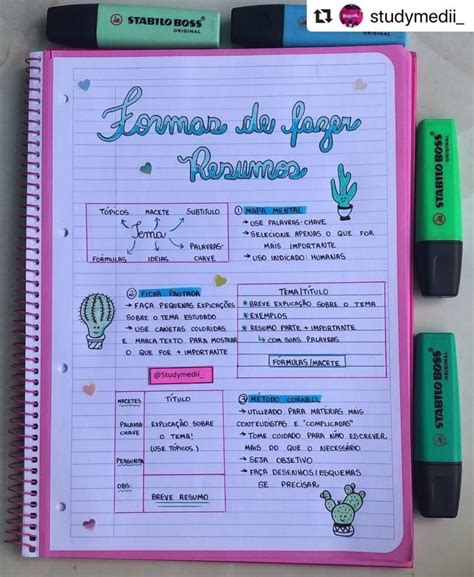 studymedii_
STABILO BOSS
ORIGINAL
Formas de fazer
Resumos
TÓPICOS MACETE SUBTITULO
Tema
FORMULAS IDEIAS PALAVRAS-
CHAVE
① MAPA MENTAL
→ USE PALAVRAS-CHAVE
→ SELECIONE APENAS O QUE FOR
MAIS IMPORTANTE
→ USO INDICADO: HUMANAS
② FICHA PAUTADA
→ FAÇA PEQUENAS EXPLICAÇÕES
SOBRE O TEMA ESTUDADO
→ USE CANETAS COLORIDAS
E MARCA TEXTO PARA MOSTRAR
O QUE FOR + IMPORTANTE
TEMA/TÍTULO
* BREVE EXPLICAÇÃO SOBRE O TEMA
* EXEMPLOS
* RESUMO PARTE + IMPORTANTE
↳ COM SUAS PALAVRAS
FORMULAS/MACETE
@Studymedii_
MACETES
PALAVRA
CHAVE
PERGUNTA
OBS:
TÍTULO
EXPLICAÇÃO SOBRE
O TEMA!
(USE TÓPICOS)
BREVE RESUMO
③ MÉTODO CORNELL
→ UTILIZADO PARA MATÉRIAS MAIS
CONTEUDISTAS E "COMPLICADAS"
→ TOME CUIDADO PARA NÃO ESCREVER
MAIS DO QUE O NECESSÁRIO
→ SEJA OBJETIVO
→ FAÇA DESENHOS/ESQUEMAS
SE PRECISAR.
STABILO BOSS
ORIGINAL
STABILO BOSS
ORIGINAL